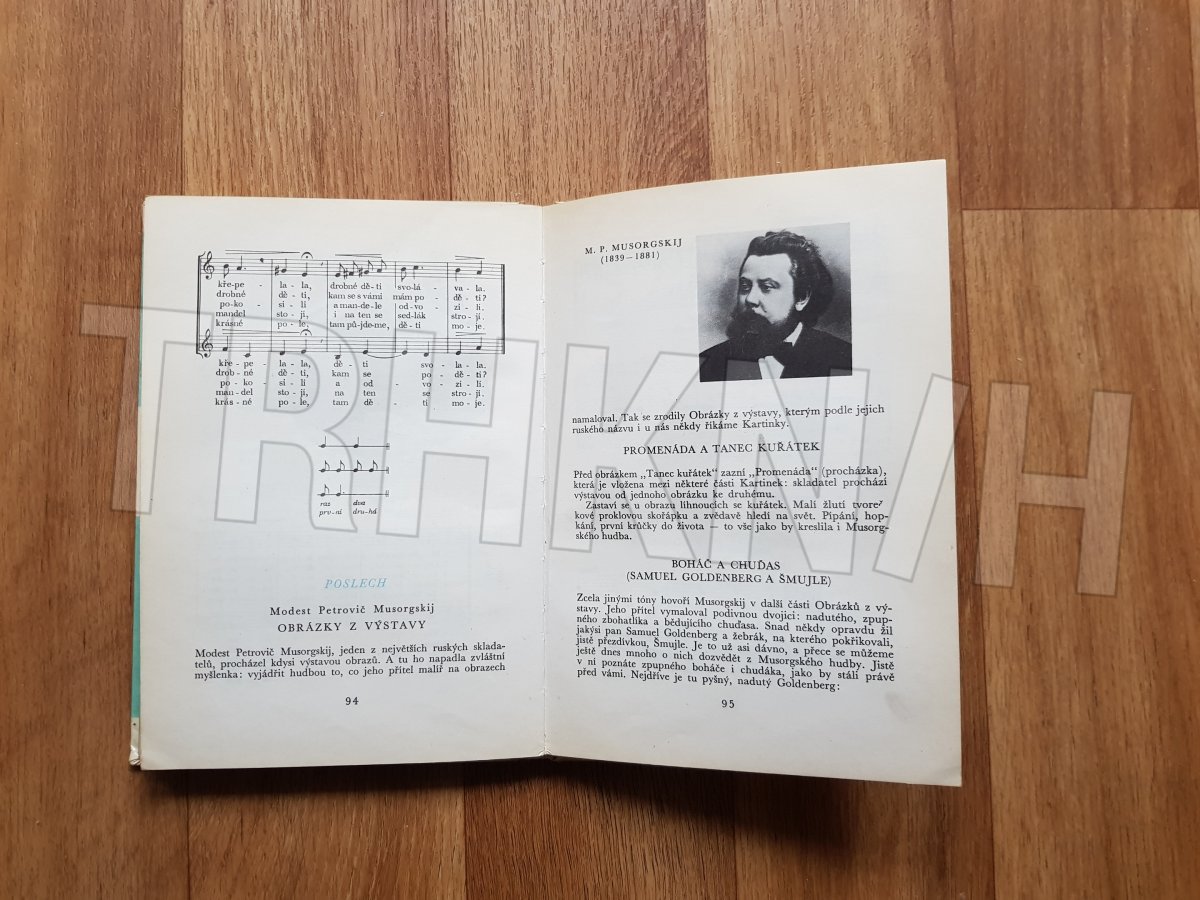 křepe - la - la, drobné dě - ti svo-lá - va - la.
drobné dě - ti, kam se s vámi mám po - dě - ti?
po-ko - si - li a man-de-le od-vo - zi - li.
mandel sto - jí, i na ten se sed-lák stro-jí.
krásné po - le, tam půj-deme, dě-ti mo - je.
kře - pe - la - la, dě - ti svo - la - la.
drob-né dě - ti, kam se po - dě - ti?
po - ko - si - li a od - vo - zi - li.
man-del sto - jí, na ten se stro-jí.
krás-né po - le, tam dě - ti mo - je.
raz dva
prv-ní dru-há
POSLECH
Modest Petrovič Musorgskij
OBRÁZKY Z VÝSTAVY
Modest Petrovič Musorgskij, jeden z největších ruských sklada-
telů, procházel kdysi výstavou obrazů. A tu ho napadla zvláštní
myšlenka: vyjádřit hudbou to, co jeho přítel malíř na obrazech
94
M. P. MUSORGSKIJ
(1839—1881)
namaloval. Tak se zrodily Obrázky z výstavy, kterým podle jejich
ruského názvu i u nás někdy říkáme Kartinky.
PROMENÁDA A TANEC KUŘÁTEK
Před obrázkem „Tanec kuřátek" zazní „Promenáda" (procházka),
která je vložena mezi některé části Kartinek: skladatel prochází
výstavou od jednoho obrázku ke druhému.
Zastaví se u obrazu líhnoucích se kuřátek. Malí žlutí tvoreč
kové proklovou skořápku a zvědavě hledí na svět. Pípání, hop-
kání, první krůčky do života — to vše jako by kreslila i Musorg-
ského hudba.
BOHÁČ A CHUĎAS
(SAMUEL GOLDENBERG A ŠMUJLE)
Zcela jinými tóny hovoří Musorgskij v další části Obrázků z vý-
stavy. Jeho přítel vymaloval podivnou dvojici: nadutého, zpup-
ného zbohatlíka a bědujícího chuďasa. Snad někdy opravdu žil
jakýsi pan Samuel Goldenberg a žebrák, na kterého pokřikovali,
jistě přezdívkou, Šmujle. Je to už asi dávno, a přece se můžeme
ještě dnes mnoho o nich dozvědět z Musorgského hudby. Jistě
v ní poznáte zpupného boháče i chudáka, jako by stáli právě
před vámi. Nejdříve je tu pyšný, nadutý Goldenberg:
95
TRHKNIH